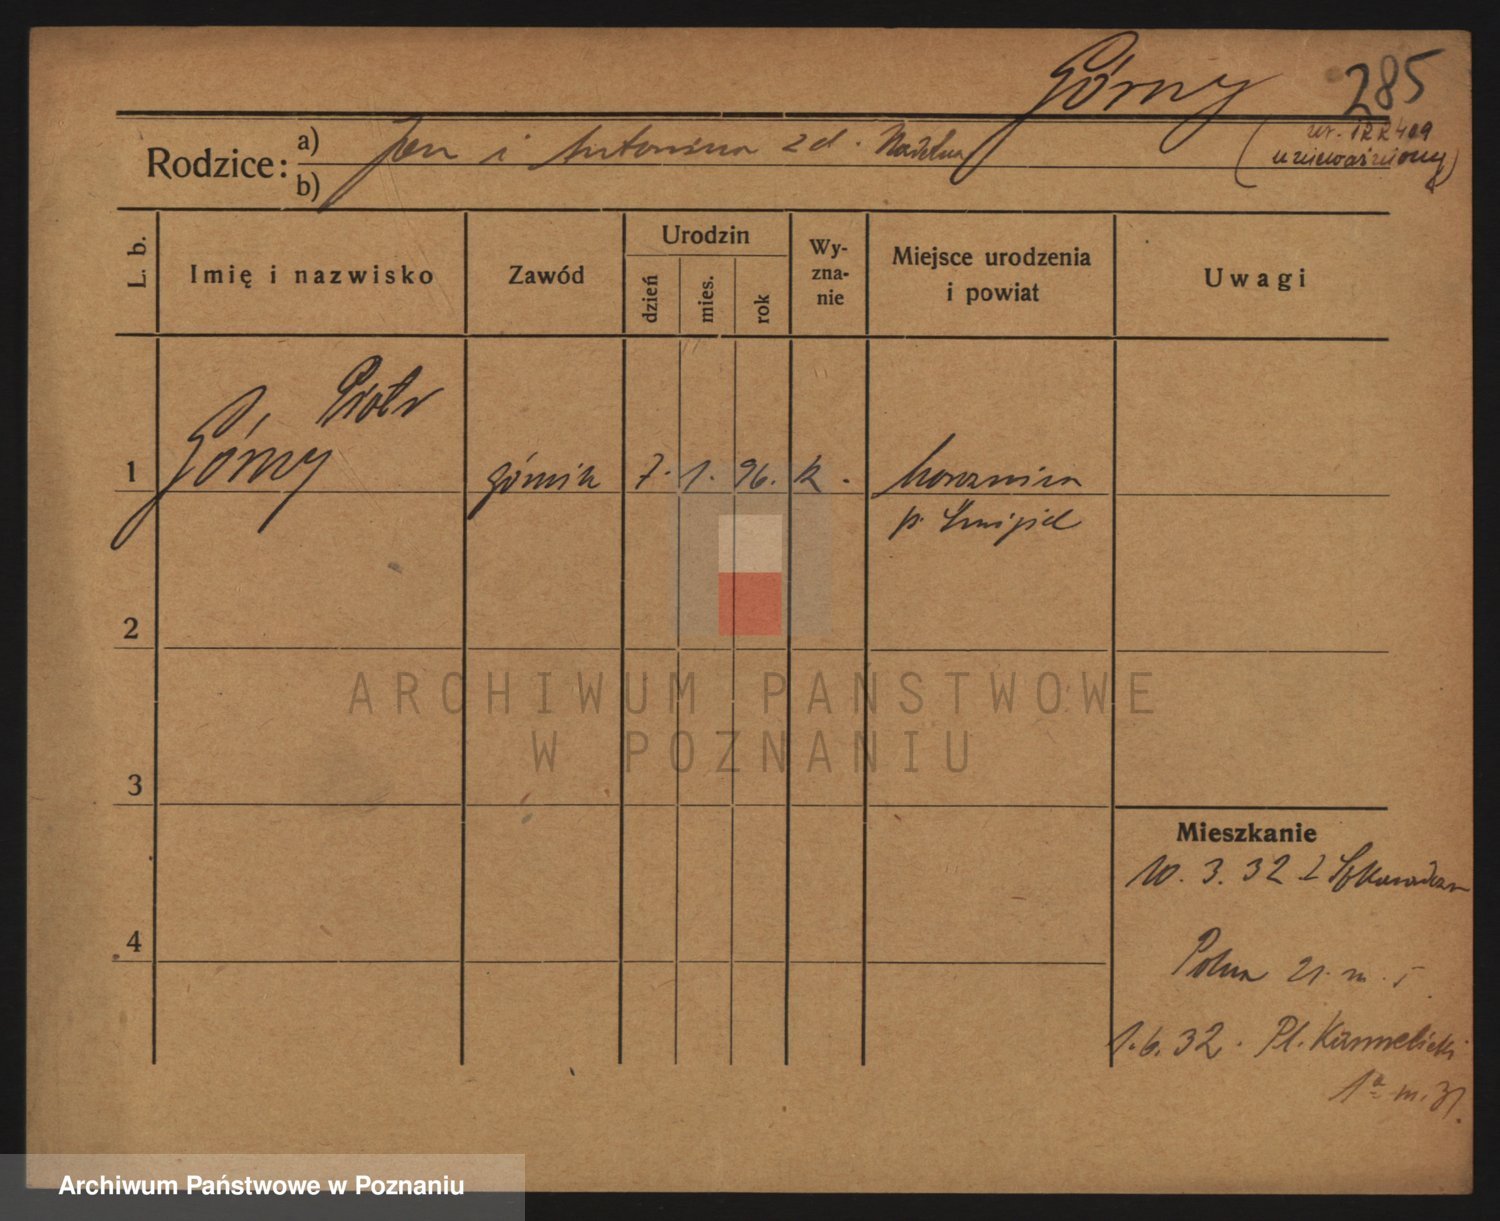 Górny 285
Rodzice: a) Jan i Antonina zd.
b)
unieważniony)
L. b.
Imię i nazwisko
Zawód
Urodzin
dzień
mies.
rok
Wy-
zna-
nie
Miejsce urodzenia
i powiat
Uwagi
Piotr
1 Górny górnik 7. 1. 96. k.
p. Śmigiel
2
3
4
ARCHIWUM PAŃSTWOWE
W POZNANIU
Mieszkanie
10. 3. 32 z
Polna 21. m. 5.
1. 6. 32. Pl. Karmelicki
1a m. 31.
Archiwum Państwowe w Poznaniu